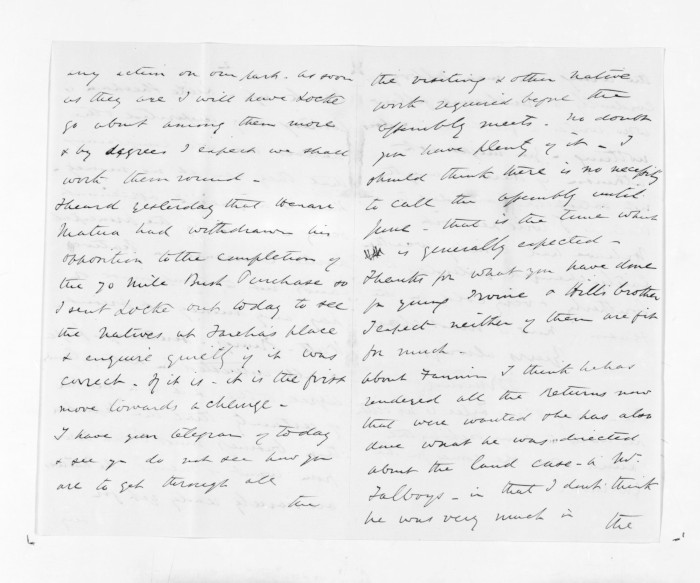 any action on our park. As soon
as they are I will have Locke
go about among them more
& by degrees I expect we shall
work them round -
I heard yesterday that
Matua had withdrawn his
opposition to the completion of
the 70 Mile Bush Purchase so
I sent Locke out today to see
the Natives at Tareha's place
& enquire quietly if it was
correct - If it is - it is the first
move towards a change -
I have your telegram of today
& see you do not see how you
are to get through all
the
the visiting & other Native
work required before the
assembly meets. No doubt
you have plenty of it - I
should think there is no necessity
to call the assembly until
June - that is the time which
is generally expected -
Thanks for what you have done
for young Irvine & Hills brother
I expect neither of them are fit
for much -
About Fannin I think he has
rendered all the Returns now
that were wanted & he has also
done what he was directed
about the land case - a Mr.
Talboys - in that I dont think
he was very much in
the